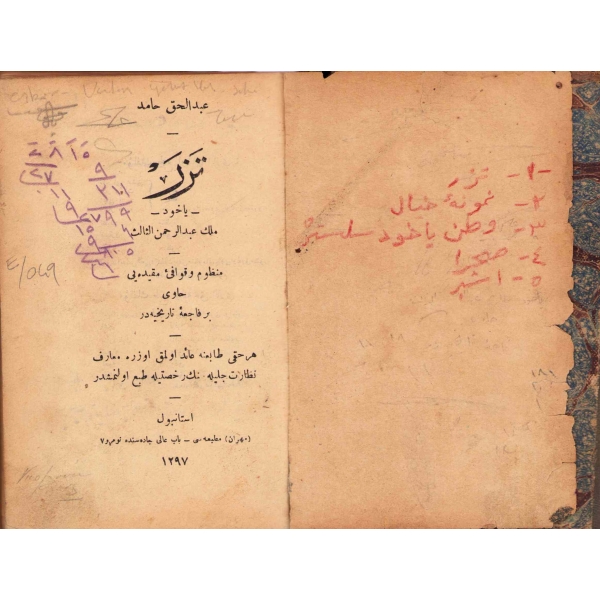 عبدالحق حامد
تزر
ـ ياخود ـ
ملك عبدالرحمن الثالث
منظوم و قوافئ مقيده‌يى
حاوى
بر فاجعهٔ تاريخيه‌در
هر حقى طابعنه عائد اولمق اوزره معارف
نظارت جليله‌سنك رخصتيله طبع اولنمشدر
استانبول
(مهران) مطبعه‌سى ـ باب عالى جاده‌سنده نومرو ٧
١٢٩٧
E/049
١- تزر
٢- نمونهٔ خيال
٣- وطن ياخود سلستره
٤- صحرا
٥- اشبر